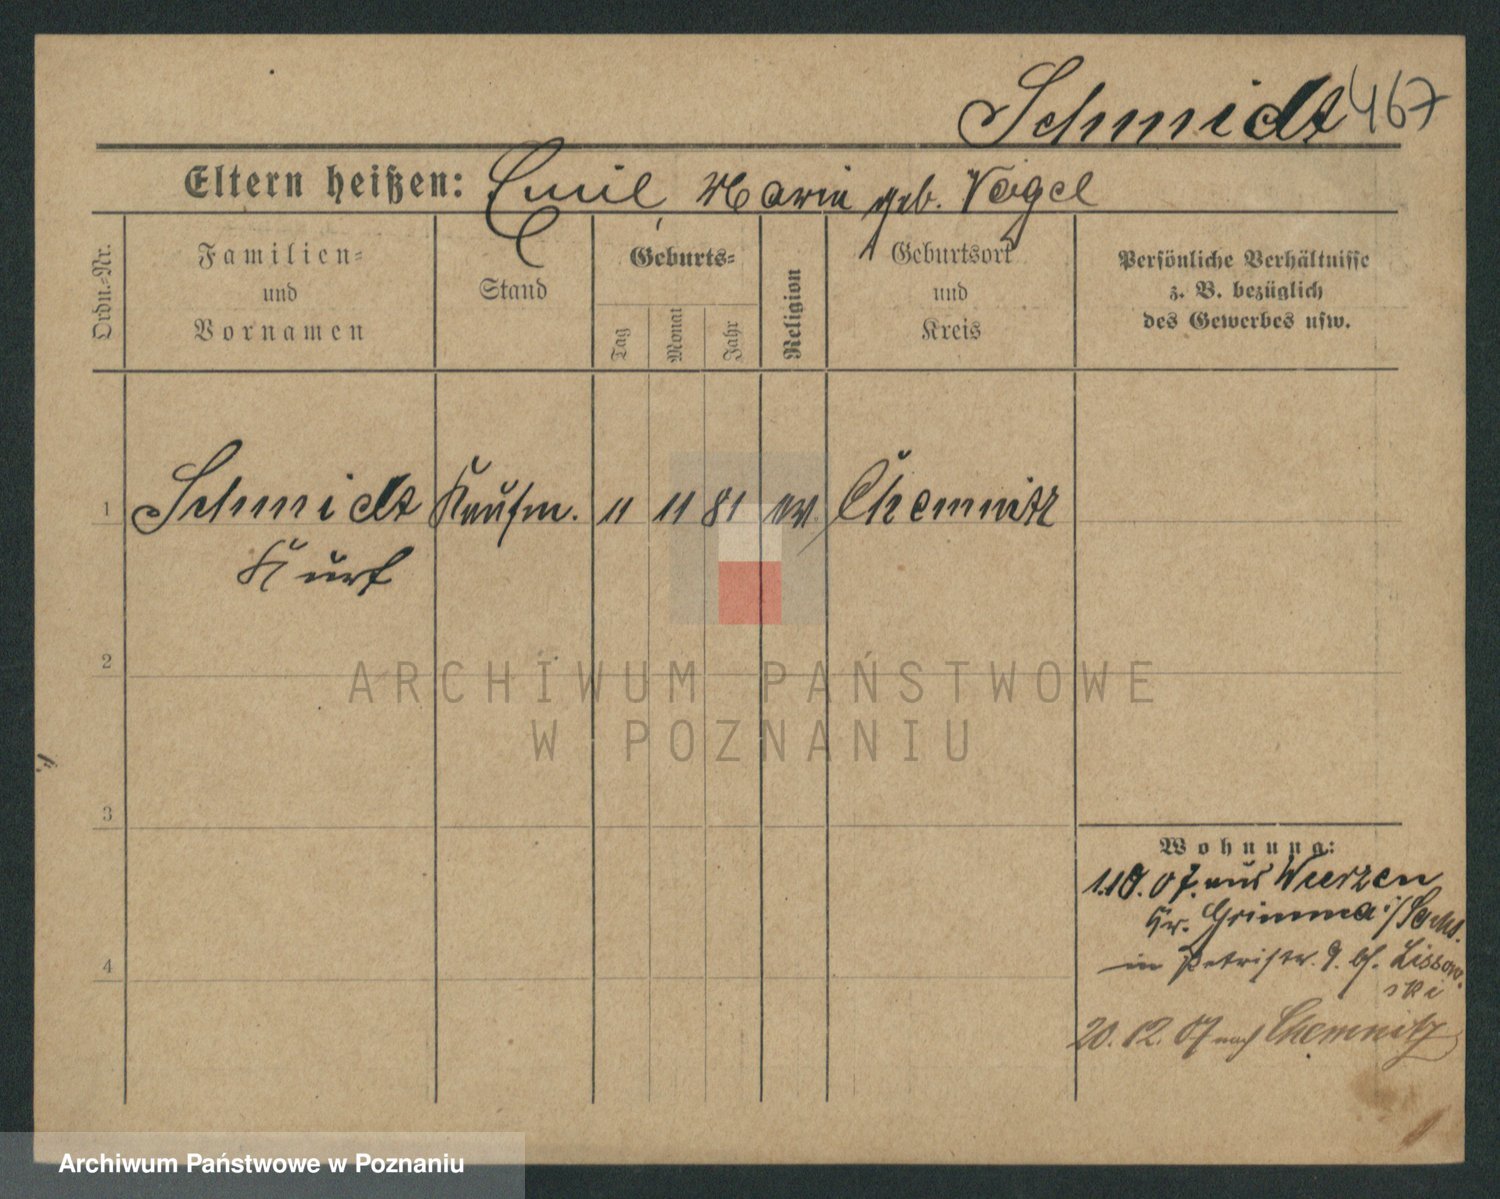 Schmidt 467
Eltern heißen: Emil, Marie geb. Vogel
Ordn.-Nr.
Familien-
und
Vornamen
Stand
Geburts-
Tag
Monat
Jahr
Religion
Geburtsort
und
Kreis
Persönliche Verhältnisse
z. B. bezüglich
des Gewerbes usw.
1 Schmidt Kaufm. 11 11 81 ev. Chemnitz
Kurt
2
ARCHIWUM PAŃSTWOWE
W POZNANIU
3
Wohnung:
1.10.07. aus Wurzen
Kr. Grimma i/Sachs.
in Petristr. 9. bf. Lissow-
ski
4
20.12.07 nach Chemnitz
Archiwum Państwowe w Poznaniu